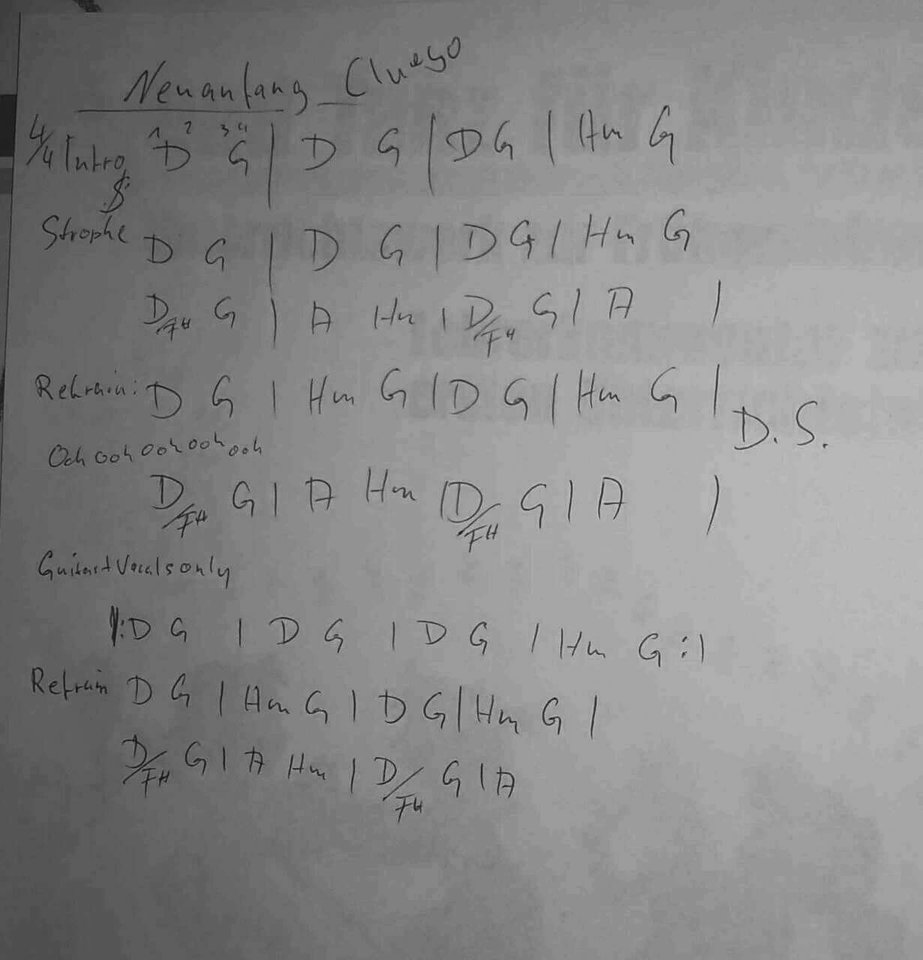 Neuanfang Clueso
4/4 Intro D G | D G | D G | Hm G
1 2 3 4
Strophe D G | D G | D G | Hm G
D/F# G | A Hm | D/F# G | A |
Refrain: D G | Hm G | D G | Hm G | D.S.
Ooh ooh ooh ooh ooh
D/F# G | A Hm | D/F# G | A |
Guitar+Vocals only
|: D G | D G | D G | Hm G :|
Refrain D G | Hm G | D G | Hm G |
D/F# G | A Hm | D/F# G | A